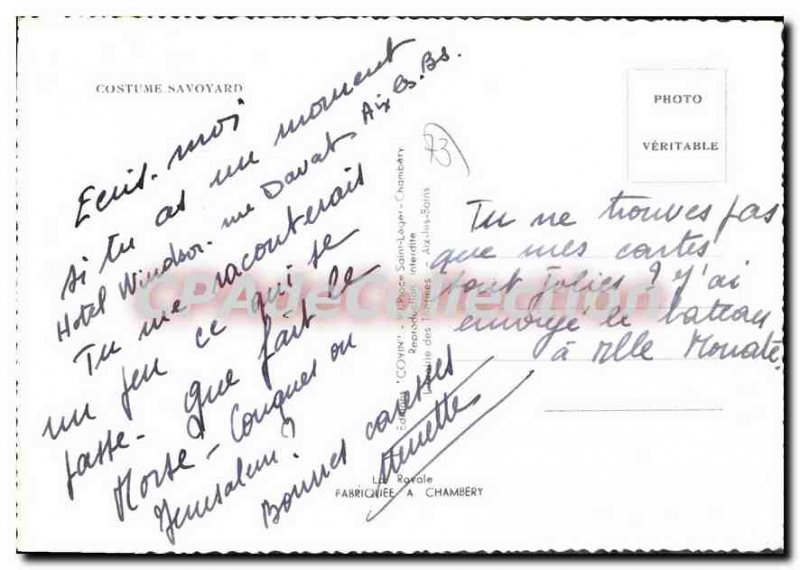 COSTUME SAVOYARD
Ecris-moi
si tu as un moment
Hotel Windsor. rue Davat Aix Bs. Bs.
Tu me raconterais
un peu ce qui se
passe - Que fait le
Morse - Conques ou
Jerusalem ?
Bonnes caresses
PHOTO
VÉRITABLE
73
Editions "COVIN" - Place Saint-Léger - Chambéry
Reproduction Interdite
Librairie des Thermes - Aix-les-Bains
Tu ne trouves pas
que mes cartes
sont jolies ? J'ai
envoyé le bateau
à Mlle
La Royale
FABRIQUÉE A CHAMBÉRY
CPAdeCollection